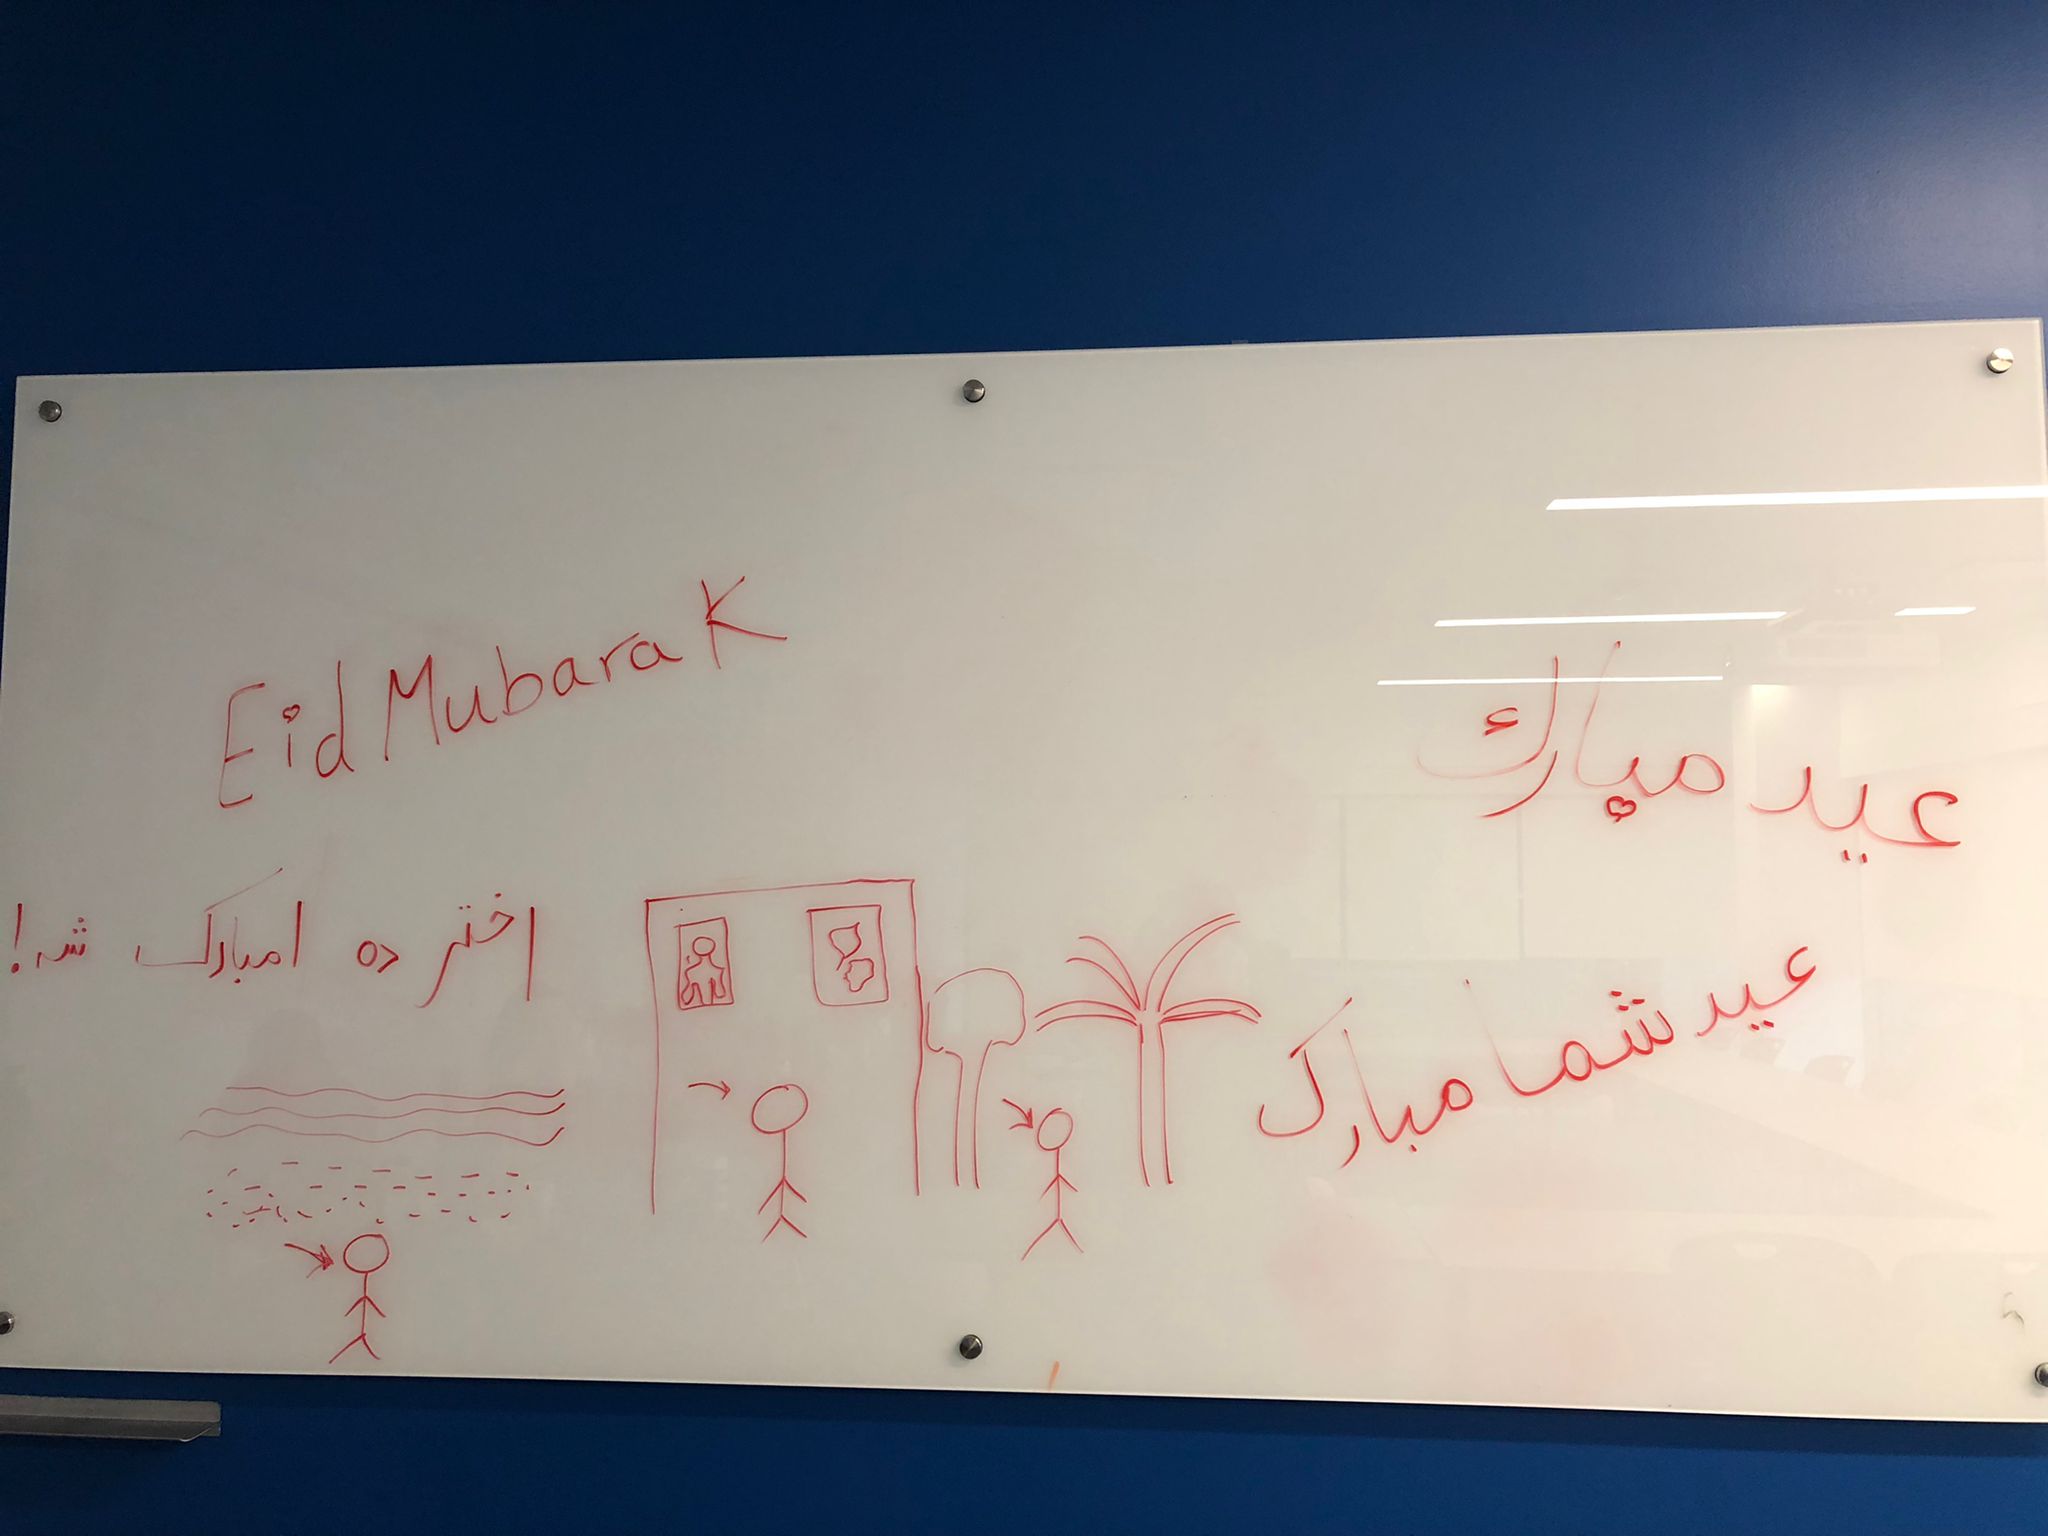 Eid Mubarak
عيد مبارك
اختر ده امبارک شه!
عید شما مبارک